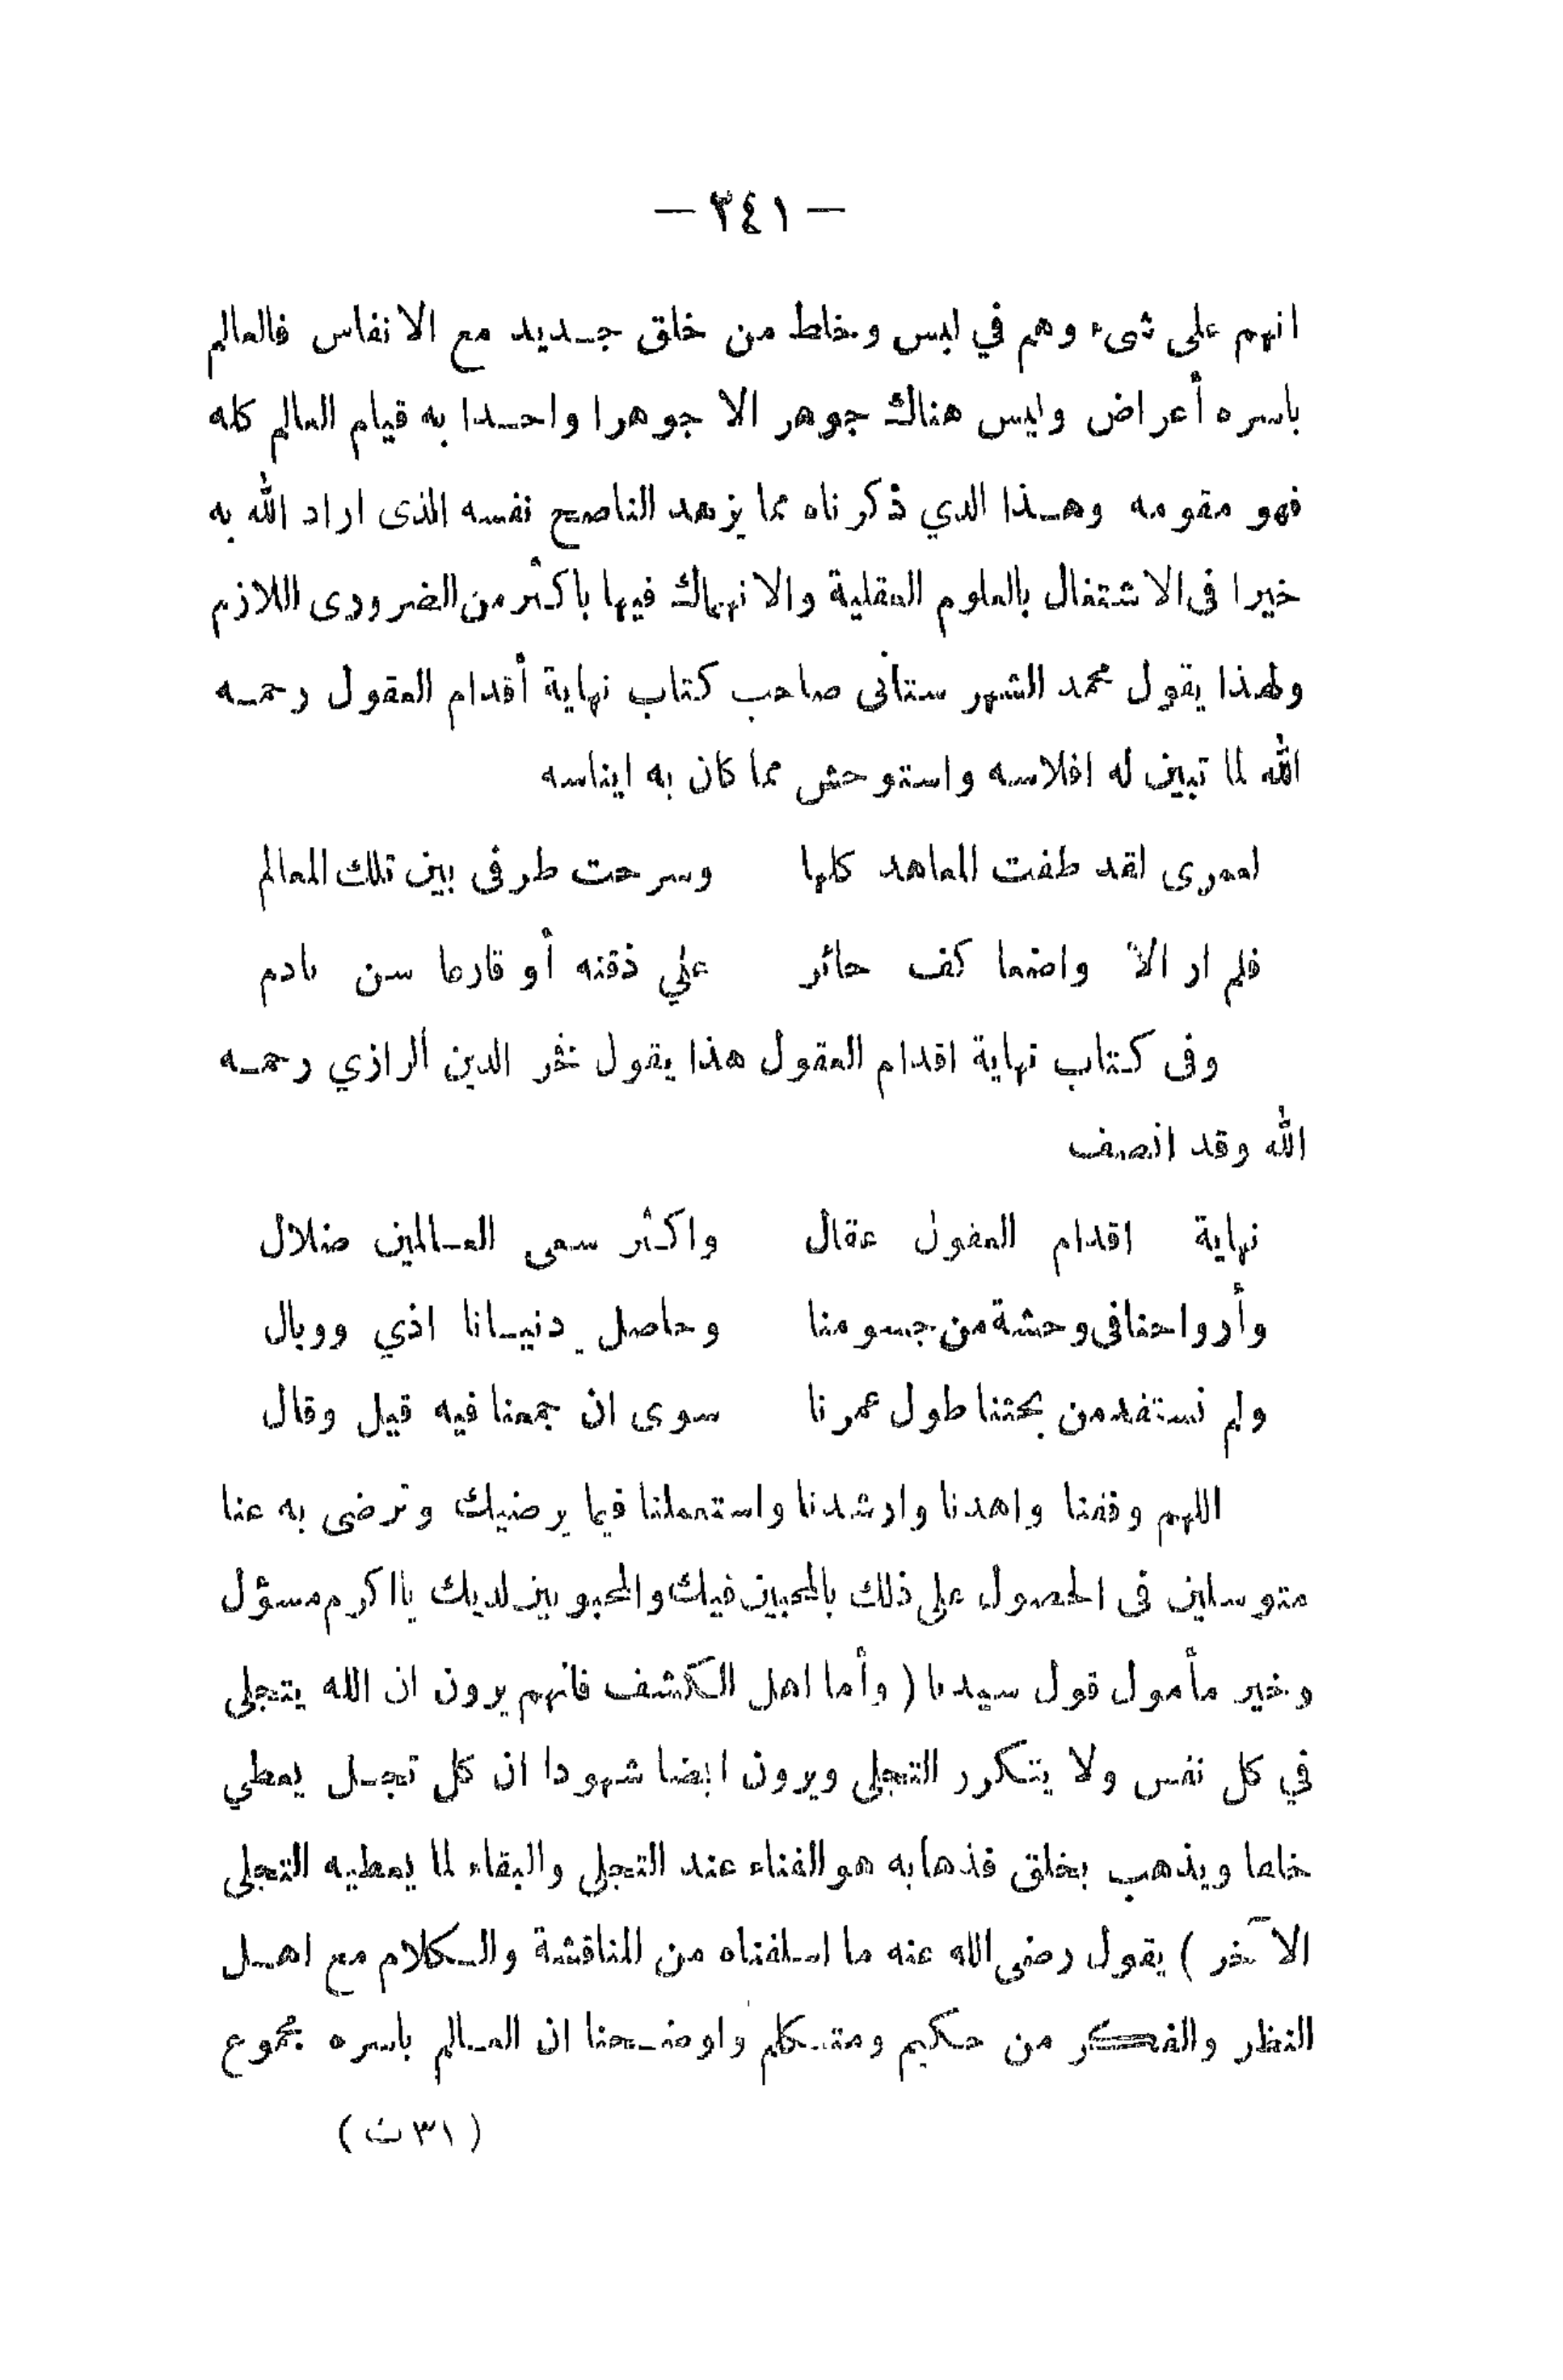 — ٣٤١ —
انهم على شىء وهم في لبس وخلط من خلق جديد مع الانفاس فالعالم
باسره أعراض وليس هناك جوهر الا جوهرا واحدا به قيام العالم كله
فهو مقومه وهذا الدي ذكرناه مما يزهد الناصح نفسه الذى اراد الله به
خيرا فى الاشتغال بالعلوم العقلية والانهماك فيها باكثر من الضرورى اللازم
ولهذا يقول محمد الشهرستانى صاحب كتاب نهاية أقدام العقول رحمه
الله لما تبين له افلاسه واستوحش مما كان به ايناسه
لعمرى لقد طفت المعاهد كلها وسرحت طرفى بين تلك المعالم
فلم ار الا واضعا كف حائر علي ذقنه أو قارعا سن نادم
وفى كتاب نهاية اقدام العقول هذا يقول فخر الدين الرازي رحمه
الله وقد انصف
نهاية اقدام العقول عقال واكثر سعى العالمين ضلال
وأرواحنا فى وحشة من جسومنا وحاصل دنيانا اذي ووبال
ولم نستفد من بحثنا طول عمرنا سوى ان جمعنا فيه قيل وقال
اللهم وفقنا واهدنا وارشدنا واستعملنا فيما يرضيك وترضى به عنا
متوسلين فى الحصول على ذلك بالمحبين فيك والمحبوبين لديك يا اكرم مسؤل
وخير مأمول قول سيدنا ( وأما اهل الكشف فانهم يرون ان الله يتجلى
في كل نفس ولا يتكرر التجلى ويرون ايضا شهودا ان كل تجل يعطي
خلعا ويذهب بخلق فذهابه هو الفناء عند التجلى والبقاء لما يعطيه التجلى
الآخر ) يقول رضى الله عنه ما اسلفناه من المناقشة والكلام مع اهل
النظر والفكر من حكيم ومتكلم واوضحنا ان العالم باسره مجموع
( ٣١ ث )